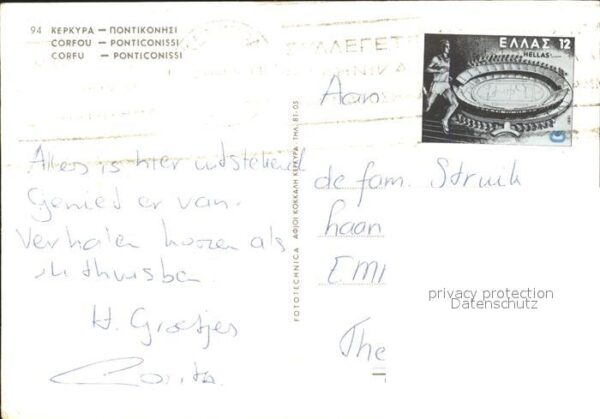 94 ΚΕΡΚΥΡΑ — ΠΟΝΤΙΚΟΝΗΣΙ
CORFOU - PONTICONISSI
CORFU - PONTICONISSI
ΕΛΛΑΣ 12
HELLAS
Alles is hier uitstekend
Geniet er van.
Verhalen horen als
ik thuisben.
H. Groetjes
Corita
FOTOTECHNICA ΑΦΙΟΙ ΚΟΚΚΑΛΗ ΚΕΡΚΥΡΑ ΤΗΛ. 81-05
Aan
de fam. Struik
haan
EMM
The
privacy protection
Datenschutz